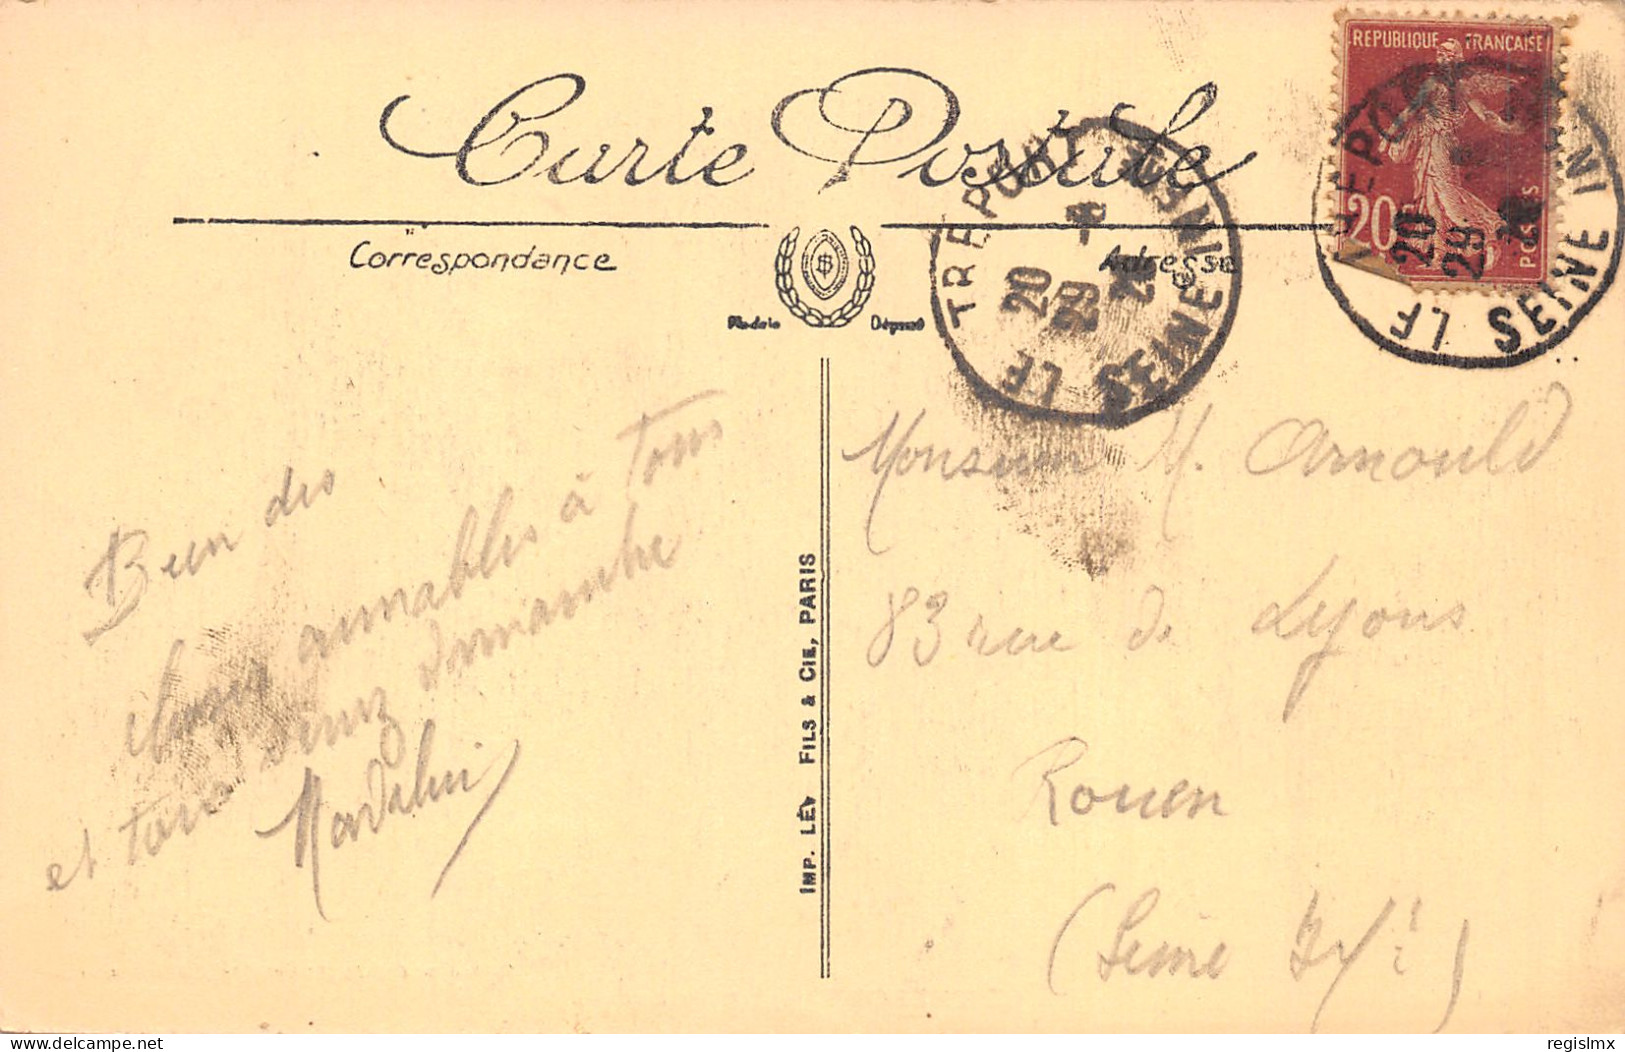 Carte Postale
Correspondance
Adresse
Modèle Déposé
REPUBLIQUE FRANÇAISE
20c
POSTES
LE TREPORT
SEINE INF
20
4
29
LE TREPORT
SEINE INF
20
29
Bien des
choses aimables à tous
et tous deux dimanche
Monsieur M. Arnould
83 rue de Lyons
Rouen
(Seine Infre)
IMP. LÉV FILS & CIE, PARIS
delcampe.net
regislmx